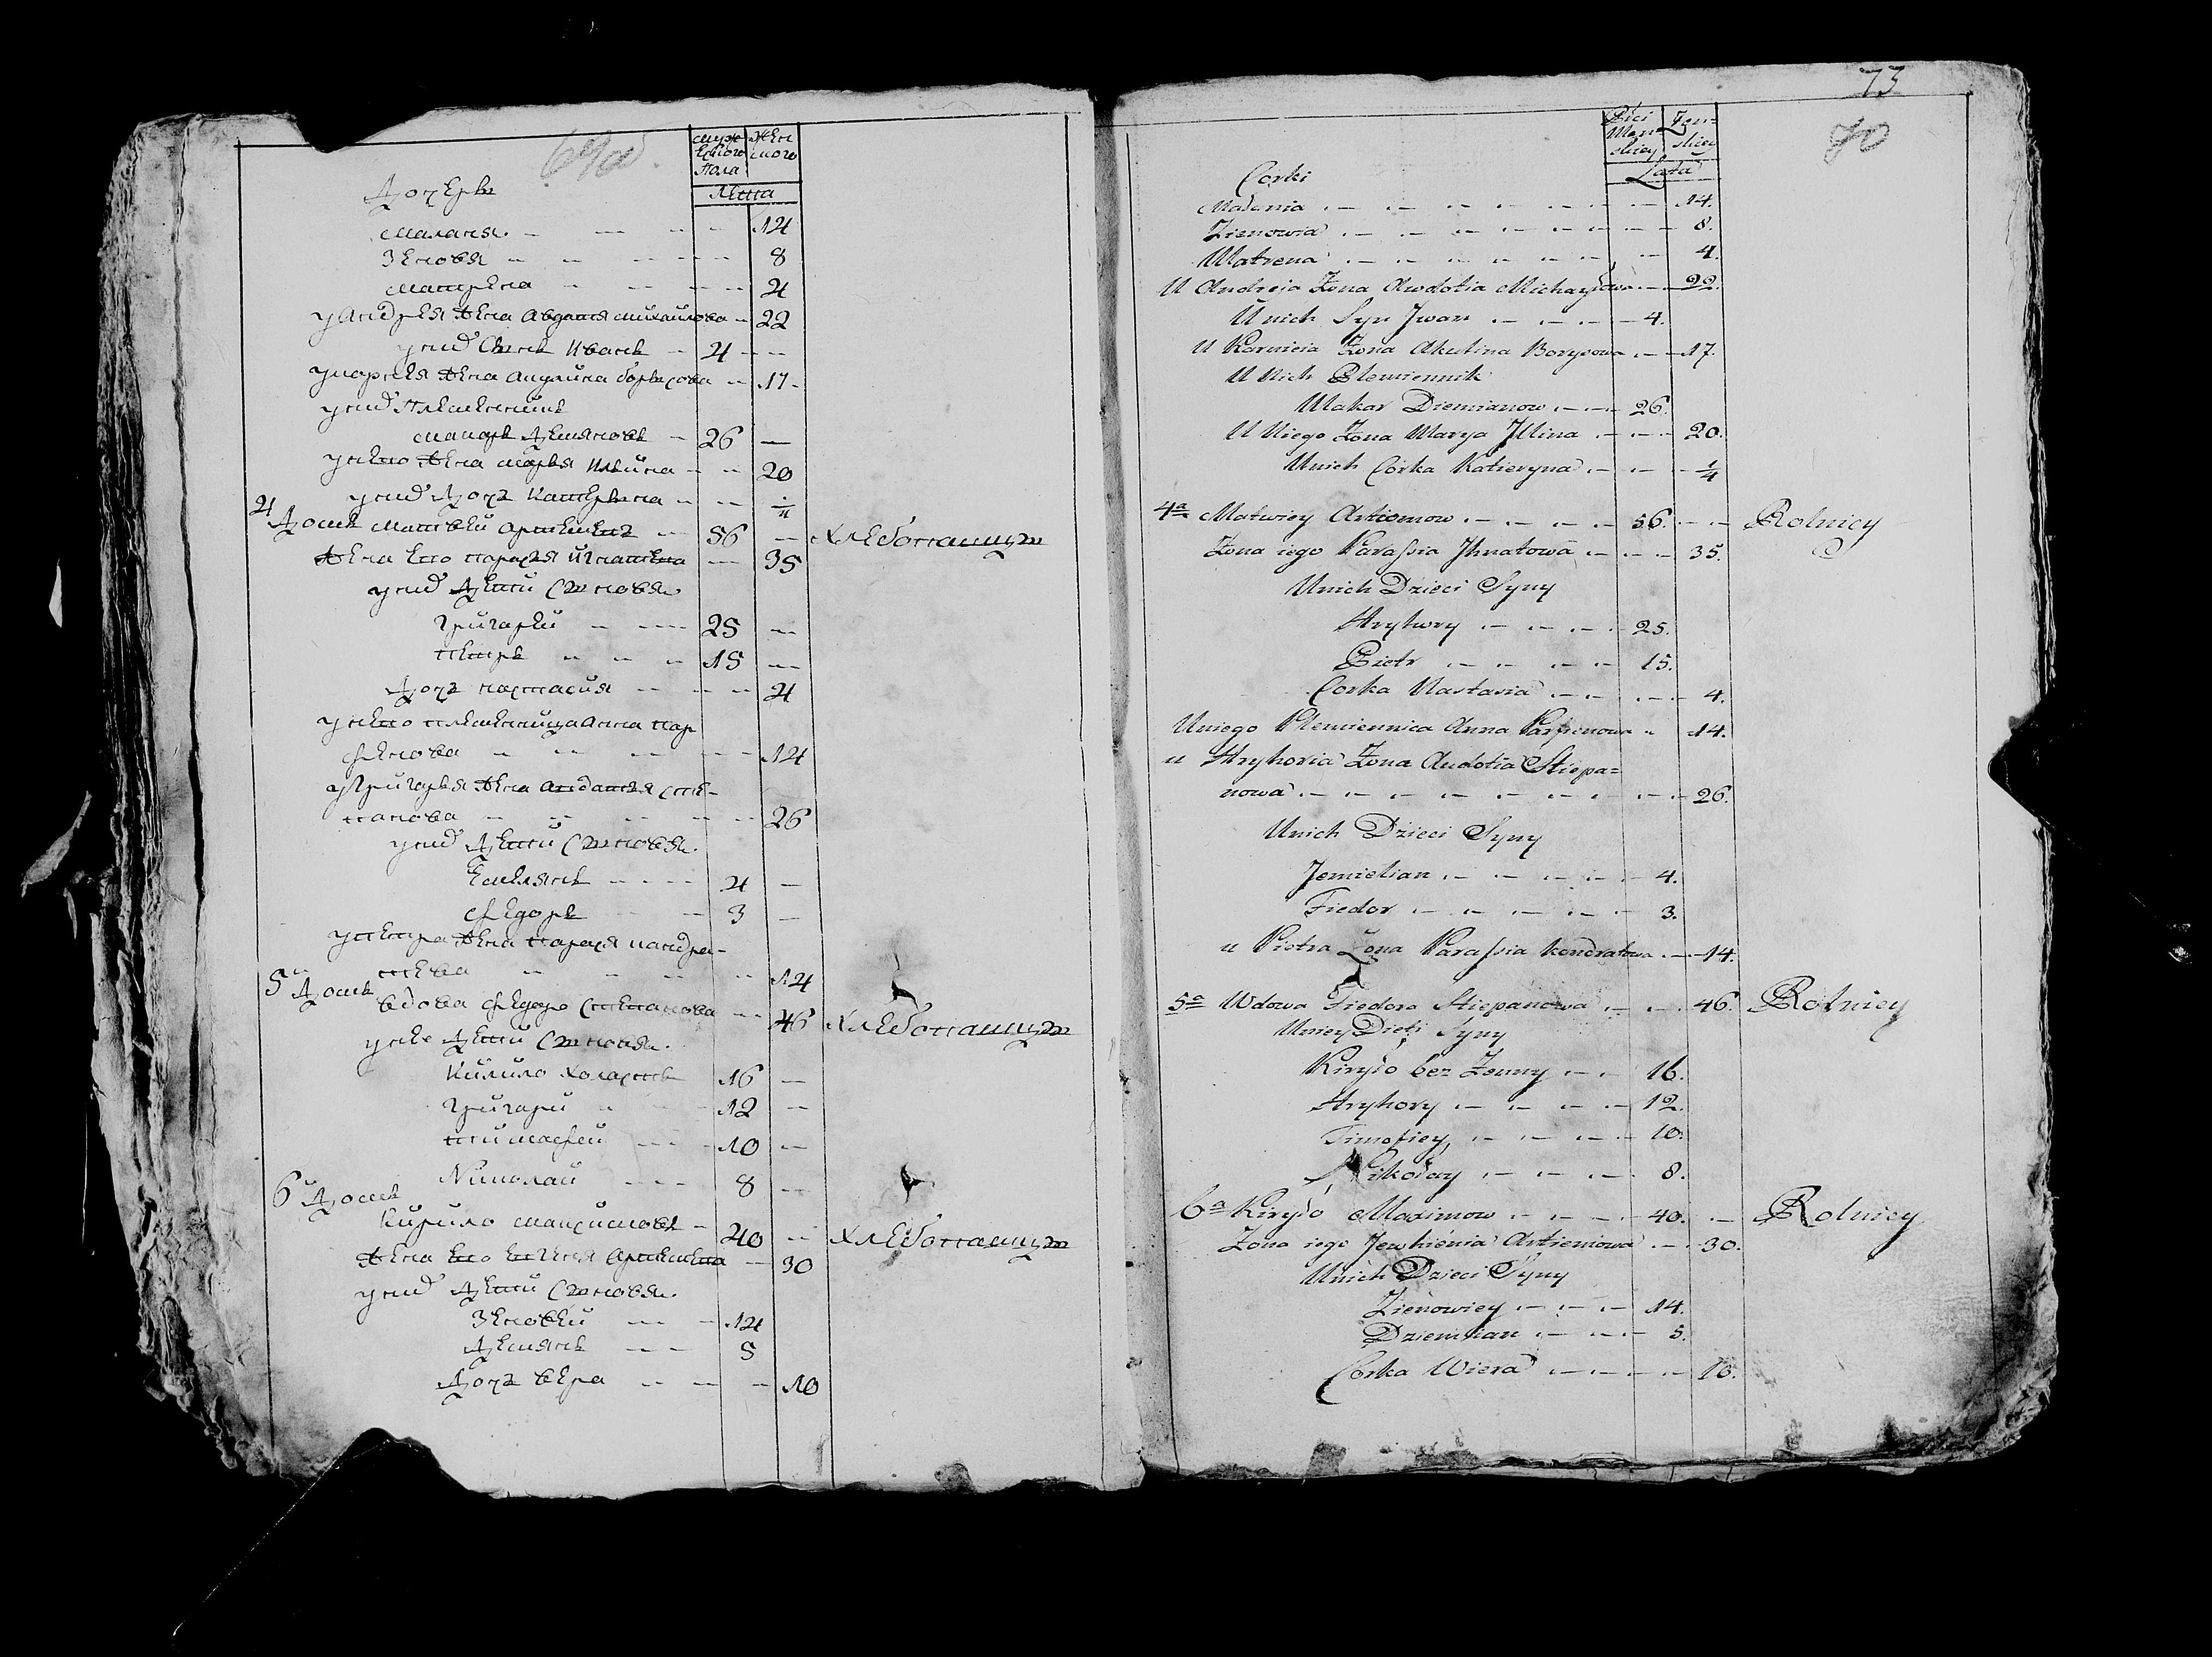 69об.
мужескаго пола
женскаго
Лета
Дочеръ
Маланя 14
Зеновя 8
Матрена 4
у Андрея жена Авдатя Михайлова 22
у них Сынъ Иванъ 4
у Карнея жена Акулина Борысова 17
у них Племенникъ
Макаръ Демяновъ 26
у него жена Маръя Ильина 20
у них дочъ Катерына 1/4
4 Домъ Матвей Артемевъ 56 хлебопашцы
жена его Парася Игнатева 35
у них дети Сыновя
Григарей 25
Петръ 15
Дочъ Настасия 4
у него племенница Анна Пар
фенова 14
у Григаръя жена Авдатя Сте-
панова 26
у них дети Сыновя
Емелянъ 4
Федоръ 3
у Петра жена Парася Кандра-
тева 14
5 Домъ
вдова Федора Степанова 46 хлебопашцы
у нее дети Сыновя
Кирило холастъ 16
Григарей 12
Тимафей 10
Николай 8
6 Домъ
Кирило Максимовъ 40 хлебопашцы
жена его Евгеня Артемева 30
у них дети Сыновя
Зеновей 14
Демянъ 5
Дочъ Вера 10
73
70
Płci Męskiey
Żenskiey
Lata
Corki
Małania 14.
Zienowia 8.
Matrena 4.
U Andreia Zona Awdotia Michayłowa 22.
U nich Syn Jwan 4.
U Karnieia Zona Akulina Borysowa 17.
U Nich Plemiennik
Makar Diemianow 26.
U Niego Zona Marya Jllina 20.
U nich Córka Katieryna 1/4
4a Matwiey Artiomow 56. Rolnicy
Zona iego Parassia Jhnatowa 35.
U nich Dzieci Syny
Hryhory 25.
Piotr 15.
Corka Nastasia 4.
U niego Plemiennica Anna Parfienowa 14.
u Hryhoria Zona Audotia Stiepa=
nowa 26.
U nich Dzieci Syny
Jemielian 4.
Fiedor 3.
u Piotra Zona Parassia Kondratowa 14.
5a Wdowa Fiedora Stiepanowa 46. Rolnicy
U niey Dieti Syny
Kiryło bez Zonny 16.
Hryhory 12.
Timofiey 10.
Nikołay 8.
6a Kiryło Maximow 40. Rolnicy
Zona iego Jewhienia Artiemowa 30.
U nich Dzieci Syny
Zienowiey 14.
Dziemian 5.
Corka Wiera 10.